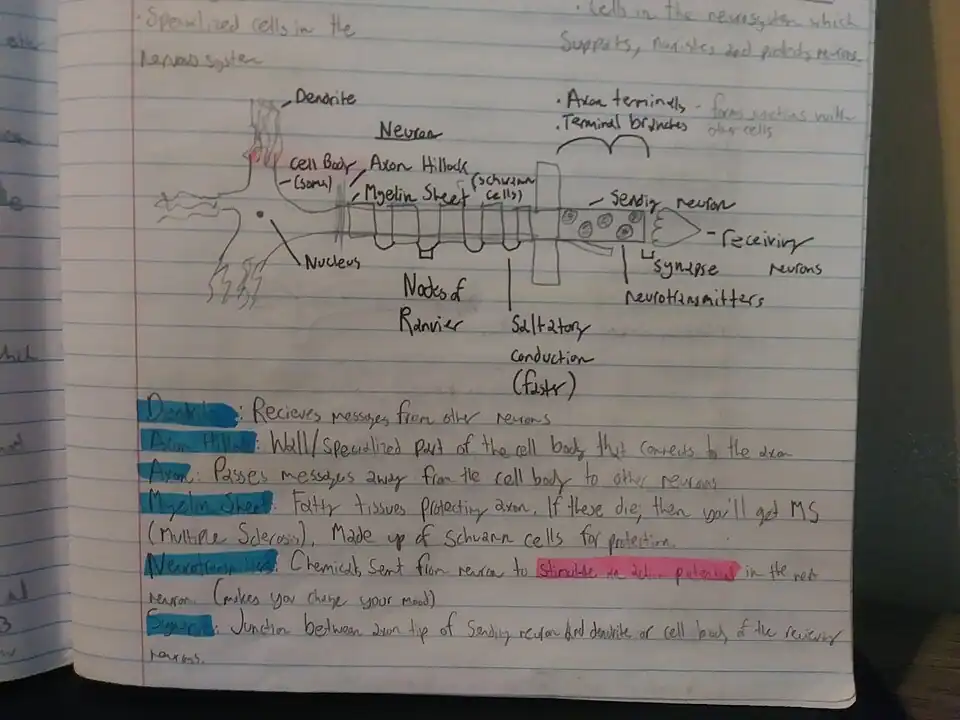 · Specialized cells in the
nervous system
· Cells in the neurosystem which
supports, and protects neurons
Dendrite
Neuron
Cell Body
(soma)
Axon Hillock
Myelin Sheet (schwann
cells)
Nucleus
Nodes of
Ranvier
Saltatory
conduction
(faster)
· Axon terminals
· Terminal branches
- forms junctions with
other cells
Sending neuron
- receiving
neurons
Synapse
neurotransmitters
Dendrite: Recieves messages from other neurons
Axon Hillock: Wall/specialized part of the cell body that connects to the axon
Axon: Passes messages away from the cell body to other neurons
Myelin Sheet: Fatty tissues protecting axon. If these die, then you'll get MS
(Multiple Sclerosis). Made up of Schwann cells for protection.
Neurotransmitters: Chemicals sent from neuron to stimulate an action potential in the next
neuron. (makes you change your mood)
Synapse: Junction between axon tip of sending neuron and dendrite or cell body of the receiving
neurons.